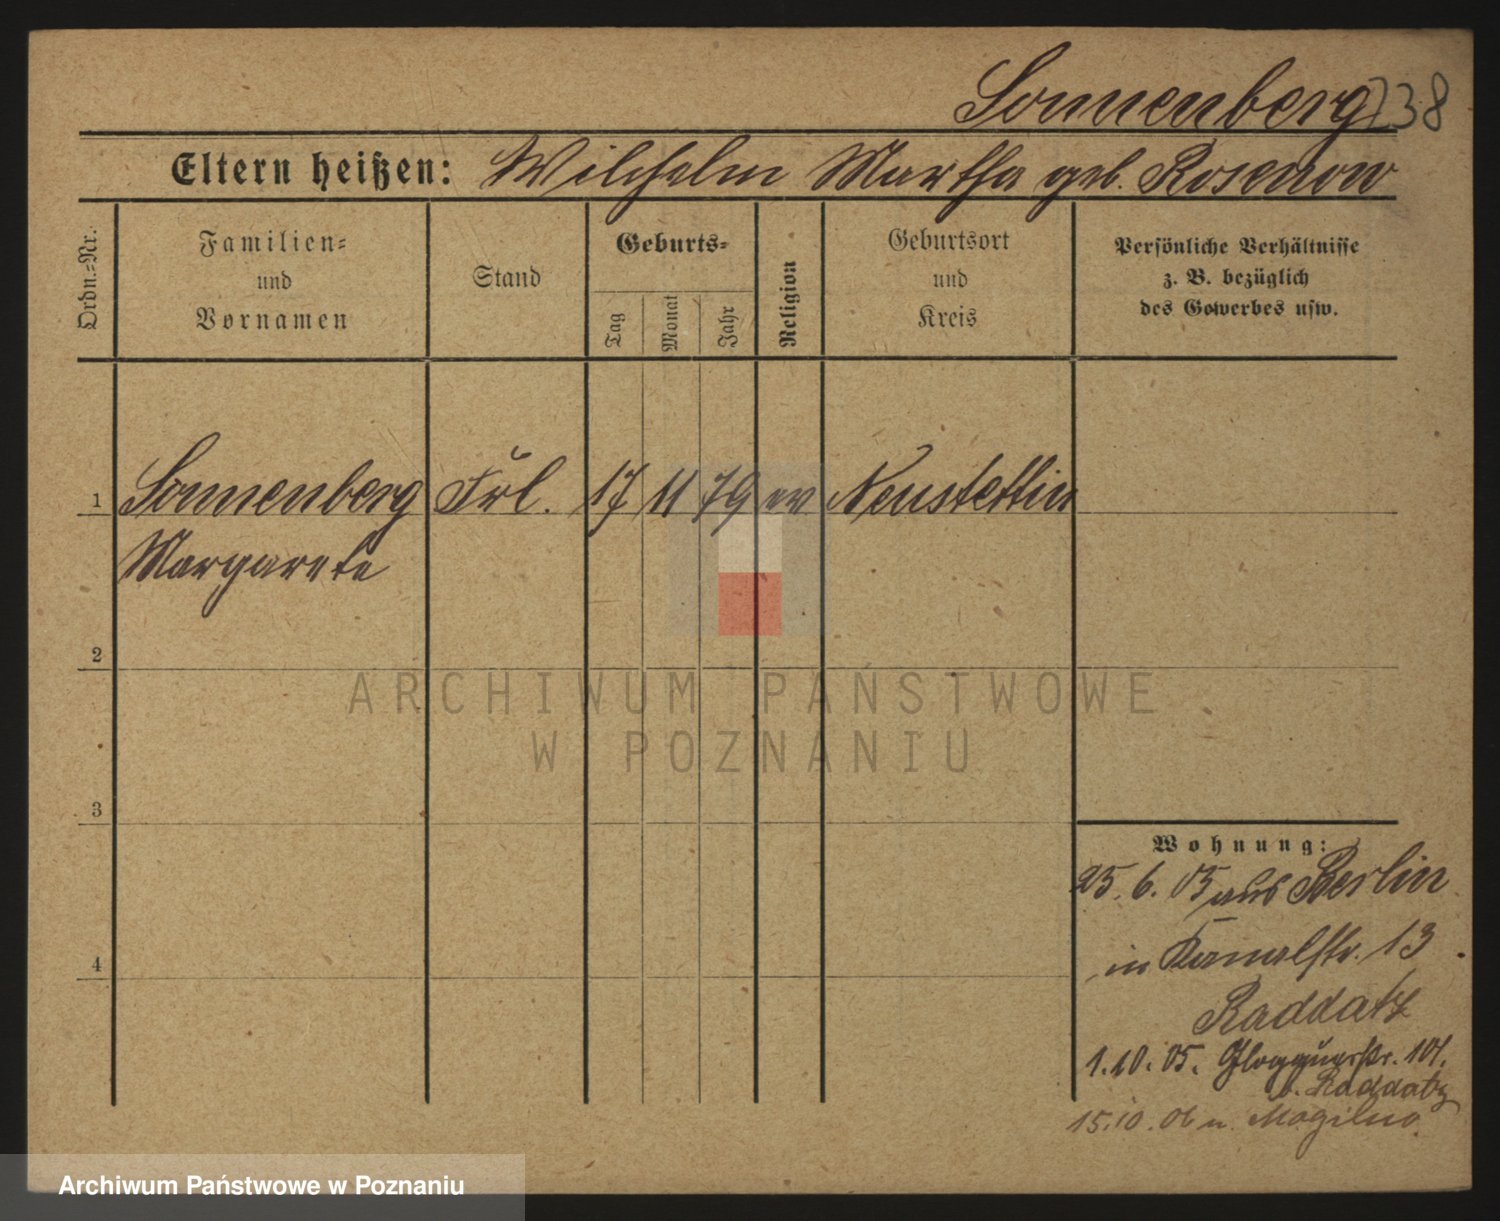 Sonnenberg 738
Eltern heißen: Wilhelm Martha geb. Rosenow
Ordn.-Nr.
Familien-
und
Vornamen
Stand
Geburts-
Tag
Monat
Jahr
Religion
Geburtsort
und
Kreis
Persönliche Verhältnisse
z. B. bezüglich
des Gewerbes usw.
1 Sonnenberg Frl. 17 11 79 ev Neustettin
Margarete
2
3
4
Wohnung:
25. 6. 05 aus Berlin
in Kanalstr. 13
Raddatz
1.10.05. 101.
b. Raddatz
15.10.06 n. Mogilno
ARCHIWUM PAŃSTWOWE
W POZNANIU
Archiwum Państwowe w Poznaniu